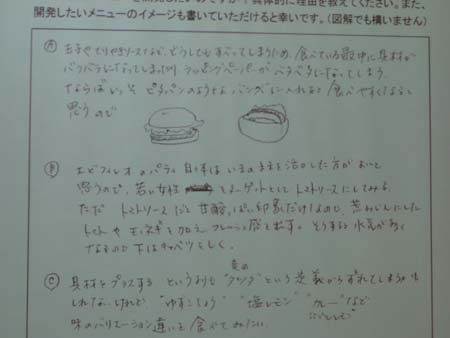 開発したいメニューのイメージも書いていただけると幸いです。(図解でも構いません)
Ⓐ 玉子やてりやきソースなど、どうしてもすべってしまうため、食べている最中に具材が
バラバラになってしまったり ラッピングペーパーがベタベタになってしまう。
ならばいっそ ピタパンのようなバンズに入れると食べやすくなると
思うので
Ⓑ エビフィレオのパティ自体はいまのままを活かした方がよいと
思うので、若い女性 をターゲットとしてトマトソースにしてみる。
ただ トマトソースだと甘酸っぱい印象だけなので、荒みじんにした
トマトや玉ネギを加え、フレッシュ感を出す。そうすると水気が多く
なるので下はキャベツをしく。
Ⓒ 具材をプラスするというよりも "アジア"という定義からずれてしまうかも
しれないけれど "ゆずこしょう" "塩レモン" "カレー"など
味のバリエーション違いを食べてみたい。